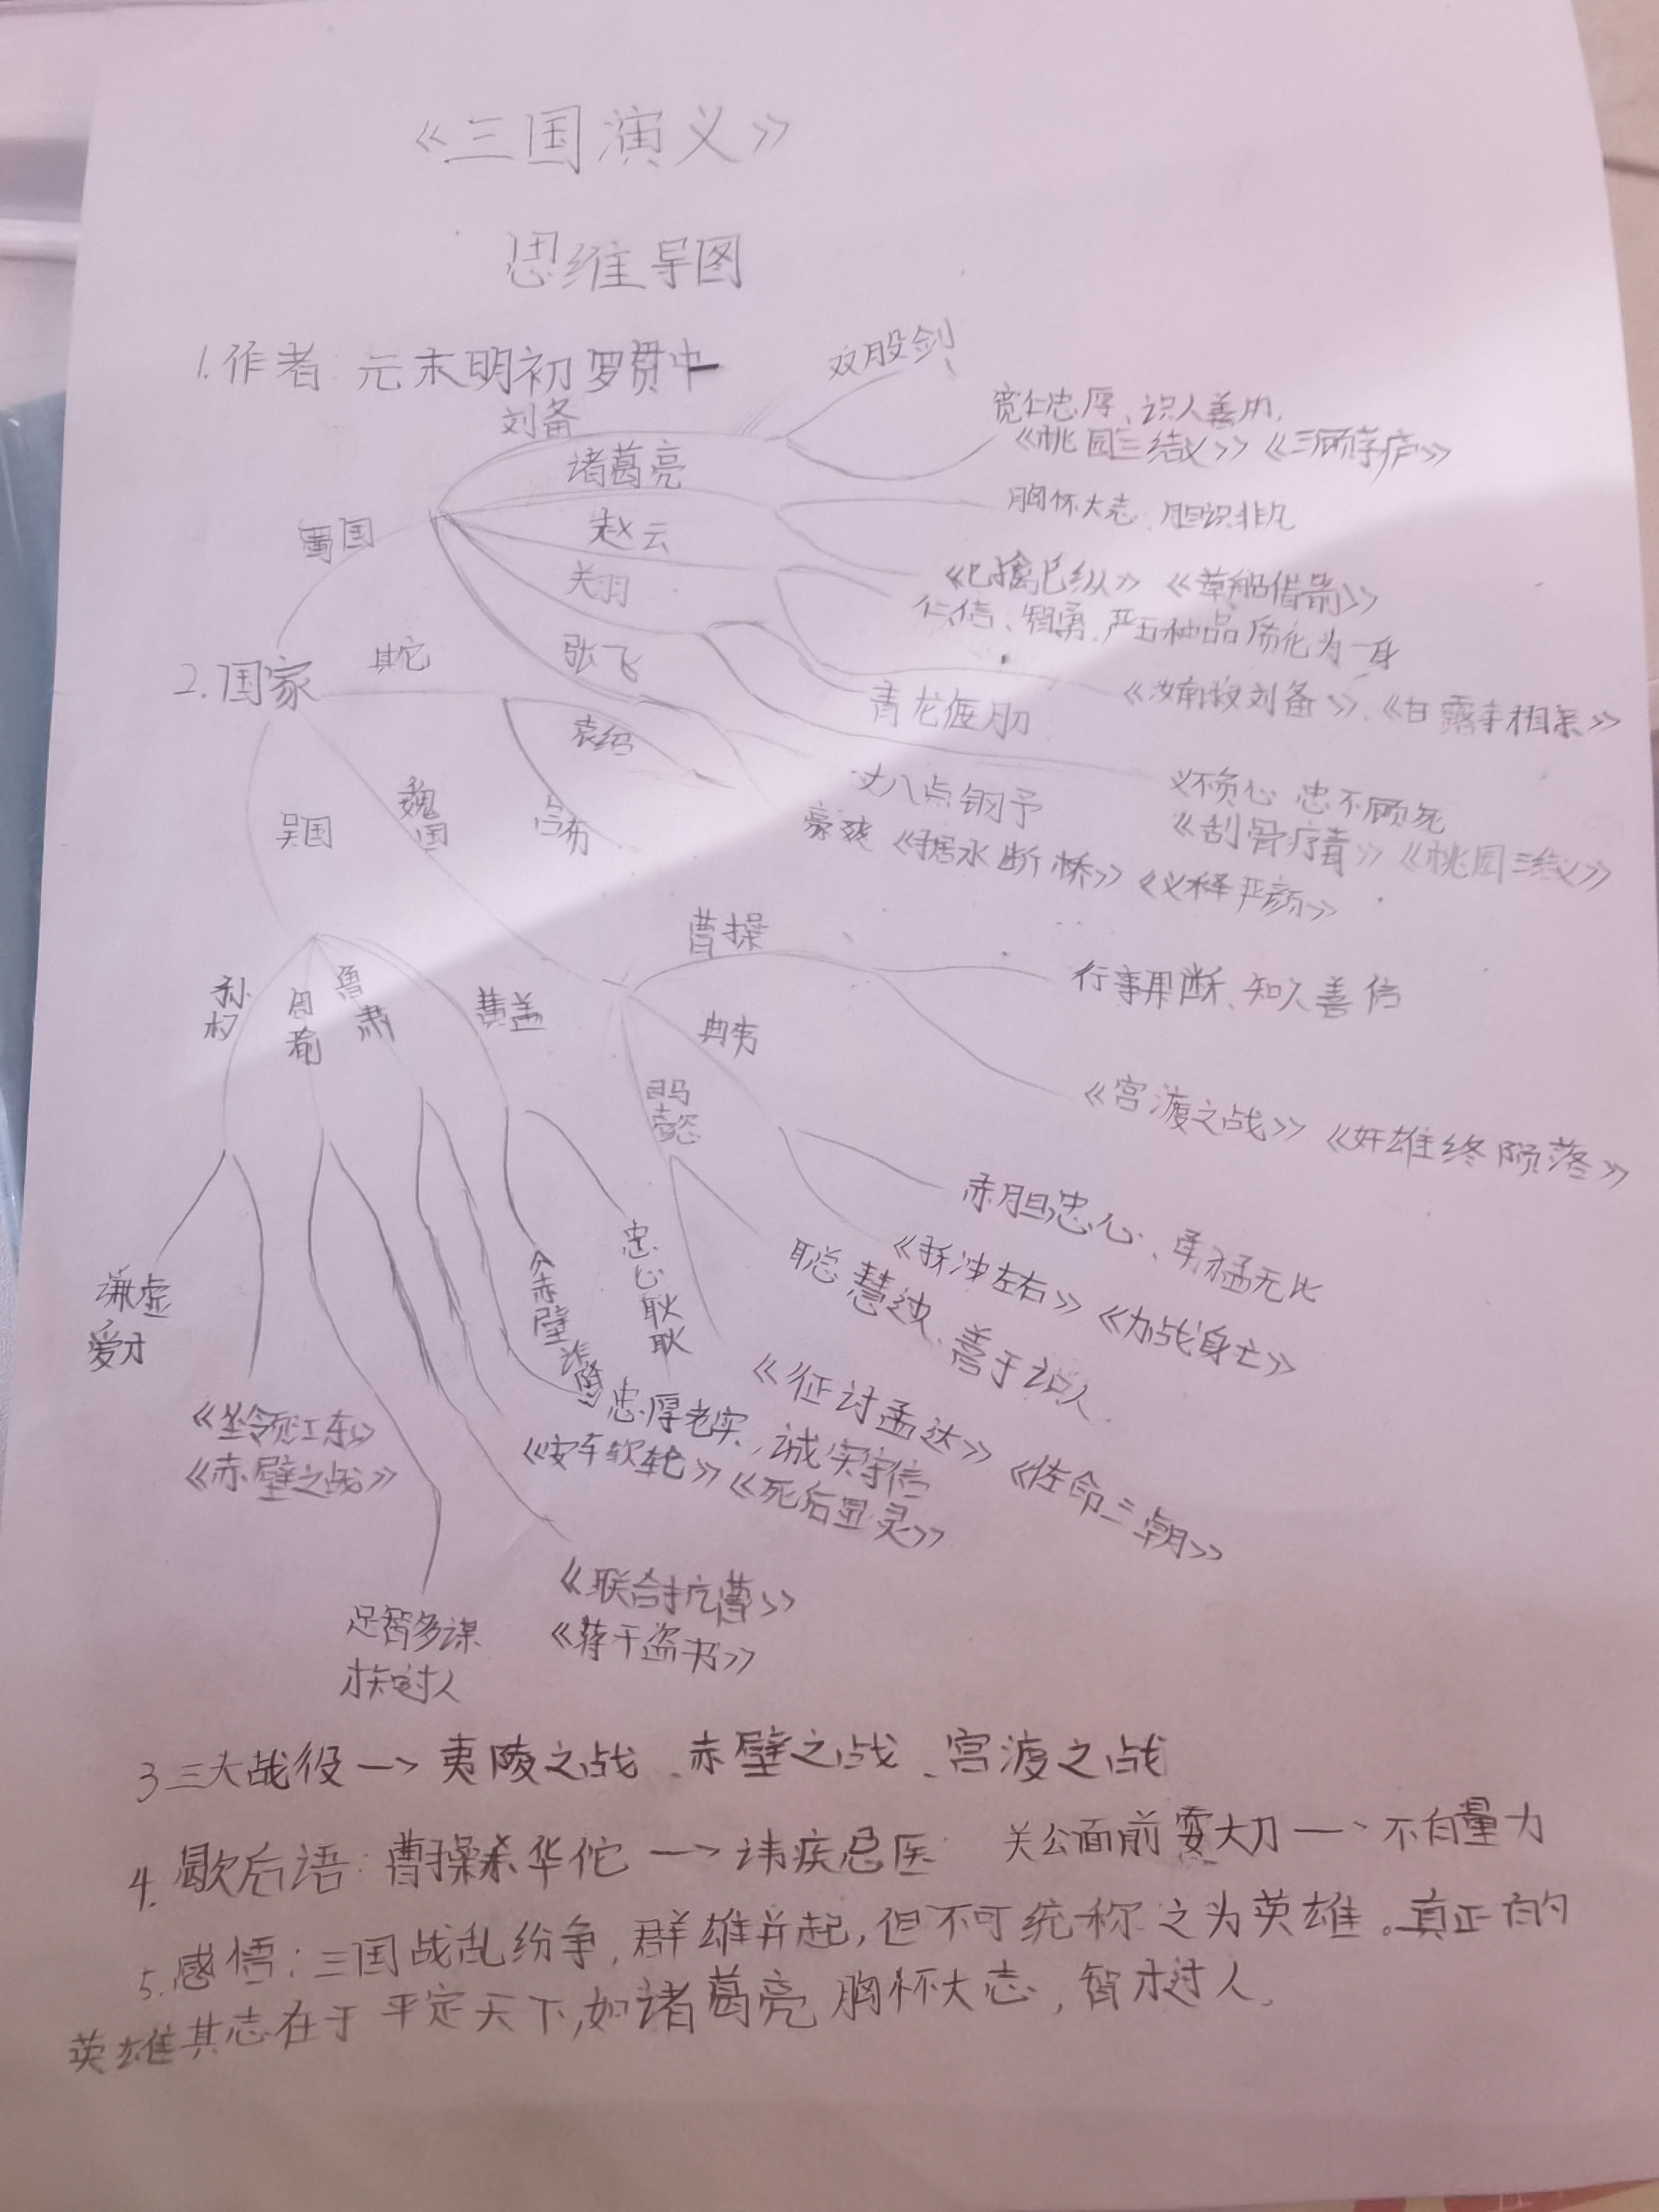 《三国演义》
思维导图
1.作者 元末明初 罗贯中
双股剑
刘备
宽仁忠厚、识人善用.
《桃园三结义》《三顾茅庐》
诸葛亮
胸怀大志、胆识非凡
蜀国
赵云
关羽
《七擒七纵》《草船借箭》
仁信、智勇、严五种品质化为一身
其它
张飞
2.国家
青龙偃月刀
《汝南救刘备》、《甘露寺相亲》
袁绍
魏国
吴国
吕布
丈八点钢矛
义不负心 忠不顾死
豪爽《据水断桥》《义释严颜》
《刮骨疗毒》《桃园三结义》
曹操
行事果断、知人善信
孙权
周瑜
鲁肃
黄盖
典韦
司马懿
《宫渡之战》《奸雄终陨落》
赤胆忠心、勇猛无比
谦虚
爱才
《赤壁诈降》
忠心耿耿
聪慧敏、善于知人.
《 冲左右》《力战身亡》
《坐领江东》
《赤壁之战》
忠厚老实,诚实守信
《安车软轮》《死后显灵》
《征讨孟达》《佐命三朝》
足智多谋
才智过人
《联合抗曹》
《蒋干盗书》
3三大战役—>夷陵之战、赤壁之战、宫渡之战
4.歇后语:曹操杀华佗—>讳疾忌医 关公面前耍大刀—>不自量力
5.感悟:三国战乱纷争,群雄并起,但不可统称之为英雄。真正的
英雄其志在于平定天下,如诸葛亮胸怀大志,智才过人。